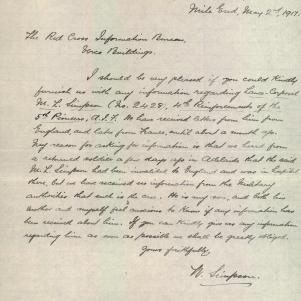 Mile End, May 2nd, 1917.
The Red Cross Information Bureau,
Verco Buildings.
I should be very pleased if you could kindly
furnish us with any information regarding Lance-Corporal
M. L. Simpson (No. 2428), 4th Reinforcements of the
5th Pioneers, A.I.F. We have received letters from him from
England, and later from France, until about a month ago.
My reason for asking for information is that we heard from
a returned soldier a few days ago in Adelaide that the said
M. L. Simpson had been invalided to England and was in hospital
there, but we have received no information from the Military
authorities that such is the case. He is my son, and both his
mother and myself feel anxious to know if any information has
been received about him. If you can kindly give us any information
regarding him as soon as possible we shall be greatly obliged.
Yours faithfully,
W. Simpson.